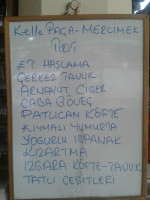 Kelle Paça - Mercimek
Tirit
ET HAŞLAMA
ÇERKEZ TAVUK
ARNAVUT CİĞER
ÇABA GÜVEÇ
PATLICAN KÖFTE
KIYMALI YUMURTA
YOĞURTLU ISPANAK
KIZARTMA
IZGARA KÖFTE-TAVUK
TATLI ÇEŞİTLERİ